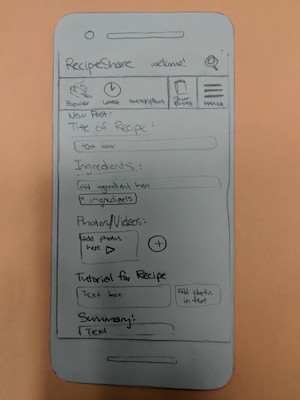 RecipeShare welcome!
Popular Latest Subscriptions Your Posts Menu
New Post:
Title of Recipe:
text box
Ingredients:
add ingredient here
+ ingredients
Photos/Videos:
add photos
here
+
Tutorial for Recipe
Text box
Add photos
in text
Summary:
Text